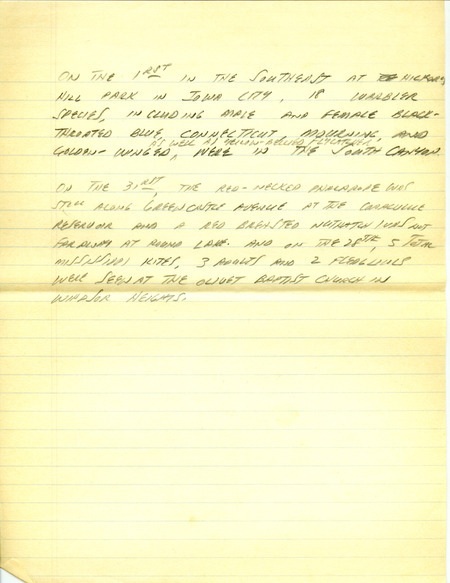 ON THE 1RST IN THE SOUTHEAST AT HICKORY
HILL PARK IN IOWA CITY, 18 WARBLER
SPECIES, INCLUDING MALE AND FEMALE BLACK-
THROATED BLUE, CONNECTICUT, MOURNING, AND
AS WELL AS YELLOW-BELLIED FLYCATCHER
GOLDEN-WINGED, WERE IN THE SOUTH CANYON.
ON THE 31RST, THE RED-NECKED PHALAROPE WAS
STILL ALONG GREENCASTLE AVENUE AT THE CORALVILLE
RESERVOIR AND A RED BREASTED NUTHATCH WAS NOT
FAR AWAY AT ROUND LAKE. AND ON THE 28TH, 5 TOTAL
MISSISSIPPI KITES, 3 ADULTS AND 2 FLEDGLINGS
WERE SEEN AT THE OLIVET BAPTIST CHURCH IN
WINDSOR HEIGHTS.